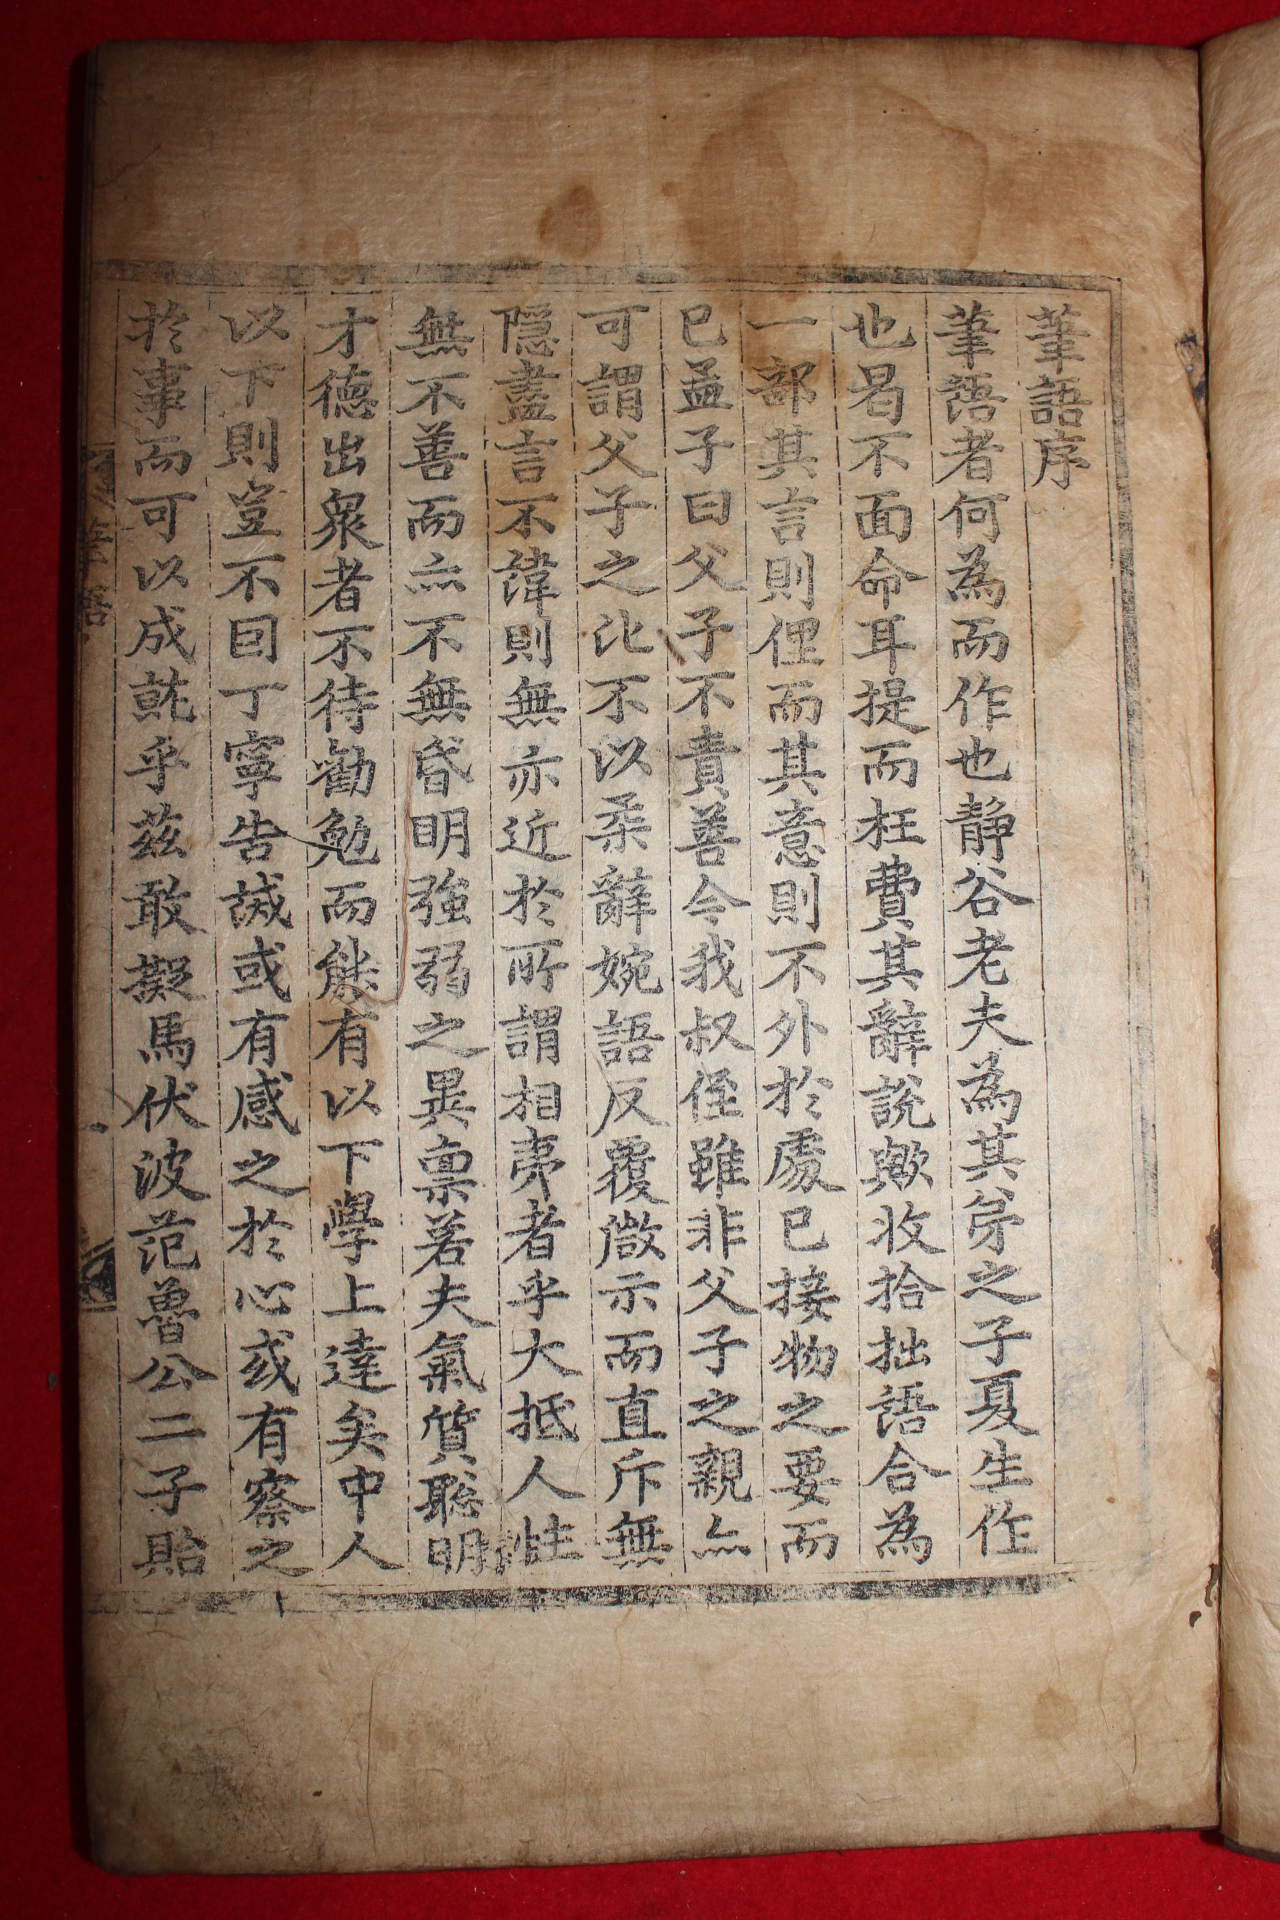 筆語序
筆語者何為而作也静谷老夫為其弟之子夏生作
也曷不面命耳提而枉費其辭說歟收拾拙語合為
一部其言則俚而其意則不外於處已接物之要而
已孟子曰父子不責善今我叔侄雖非父子之親亦
可謂父子之比不以柔辭婉語反覆微示而直斥無
隱盡言不諱則無亦近於所謂相夷者乎大抵人性
無不善而亦不無昏明強弱之異禀若夫氣質聡明
才德出衆者不待勸勉而能有以下學上達矣中人
以下則豈不因丁寧告誡或有感之於心或有察之
於事而可以成就乎兹敢擬馬伏波范魯公二子貽
筆語